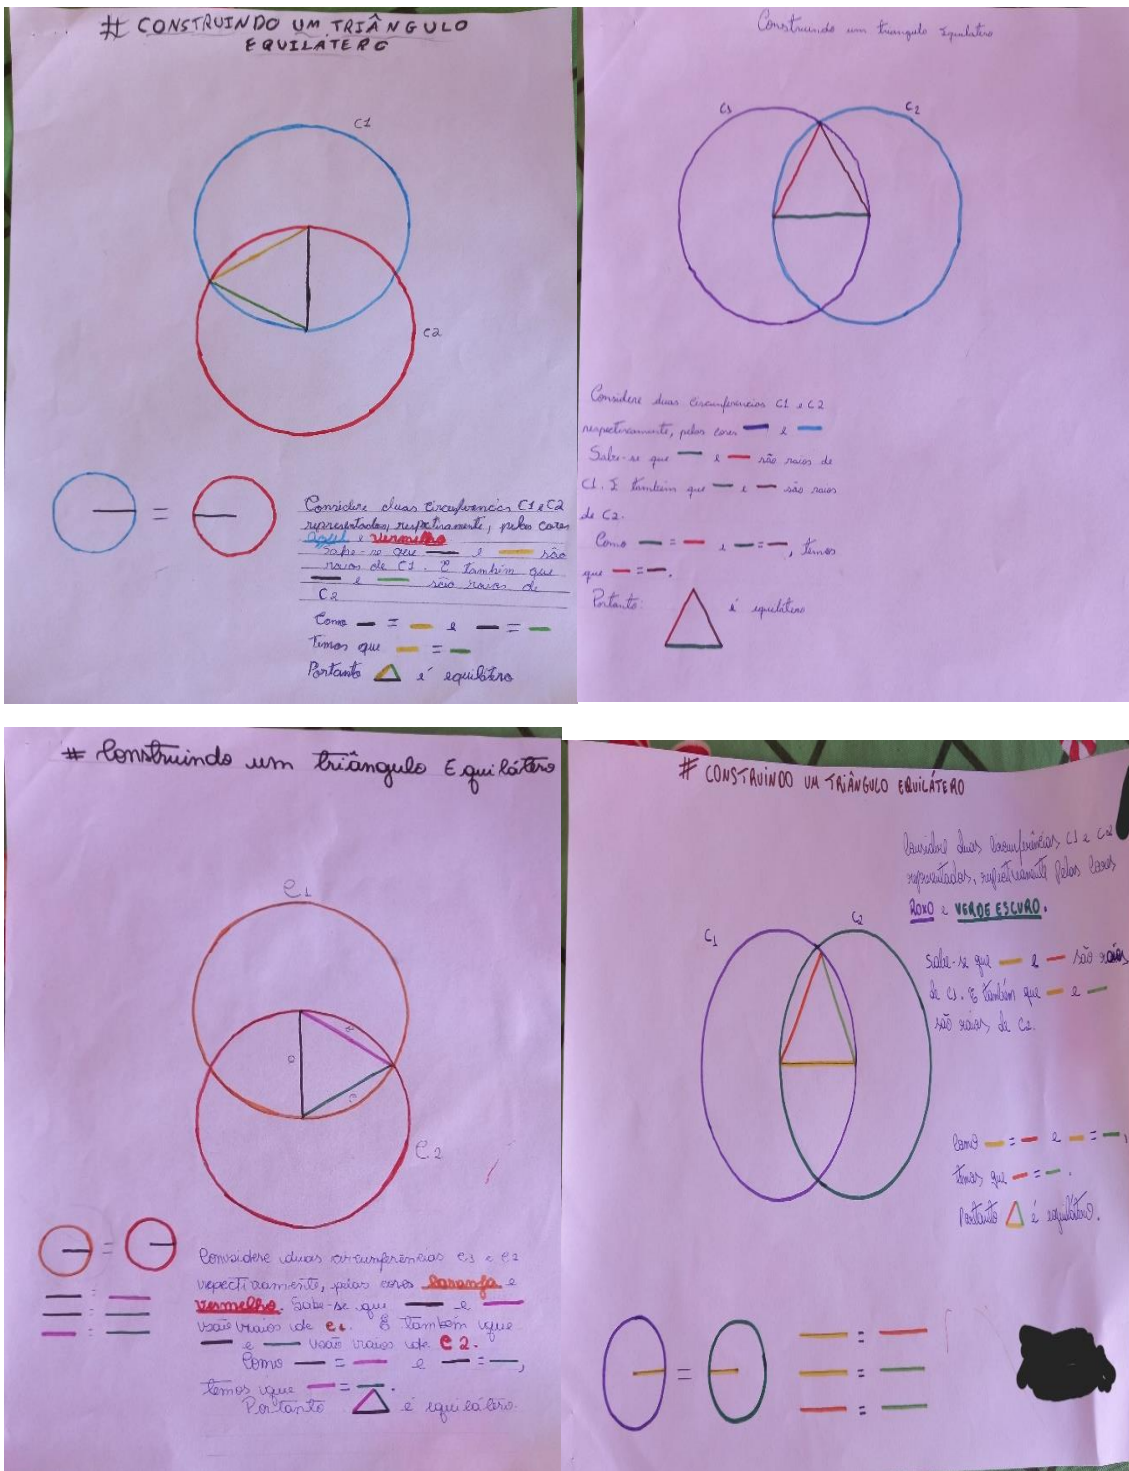 # CONSTRUINDO UM TRIÂNGULO
EQUILÁTERO
C1
C2
Considere duas circunferências C1 e C2
representadas, respectivamente, pelas cores
azul e vermelho
Sabe-se que e são
raios de C1. E também que
e são raios de
C2
Como = e =
Temos que =
Portanto é equilátero
Construindo um triangulo Equilatero
C1
C2
Considere duas circunferencias C1 e C2
respectivamente, pelas cores e
Sabe-se que e são raios de
C1. E também que e são raios
de C2.
Como = e =, temos
que =.
Portanto: é equilátero
# Construindo um triângulo Equilátero
C1
C2
=
Considere duas circunferências C1 e C2
repectivamente, pelas cores laranja e
vermelho. Sabe-se que e
são raios de C1. E também que
e são raios de C2.
Como = e =,
temos que =.
Portanto é equilátero.
=
=
=
# CONSTRUINDO UM TRIÂNGULO EQUILÁTERO
Considere duas circunferências C1 e C2
representados, respectivamente pelas cores
ROXO e VERDE ESCURO.
C1
C2
Sabe-se que e são raios
de C1. E também que e
são raios de C2.
Como = e =,
temos que =.
Portanto é equilátero.
=
=
=
=